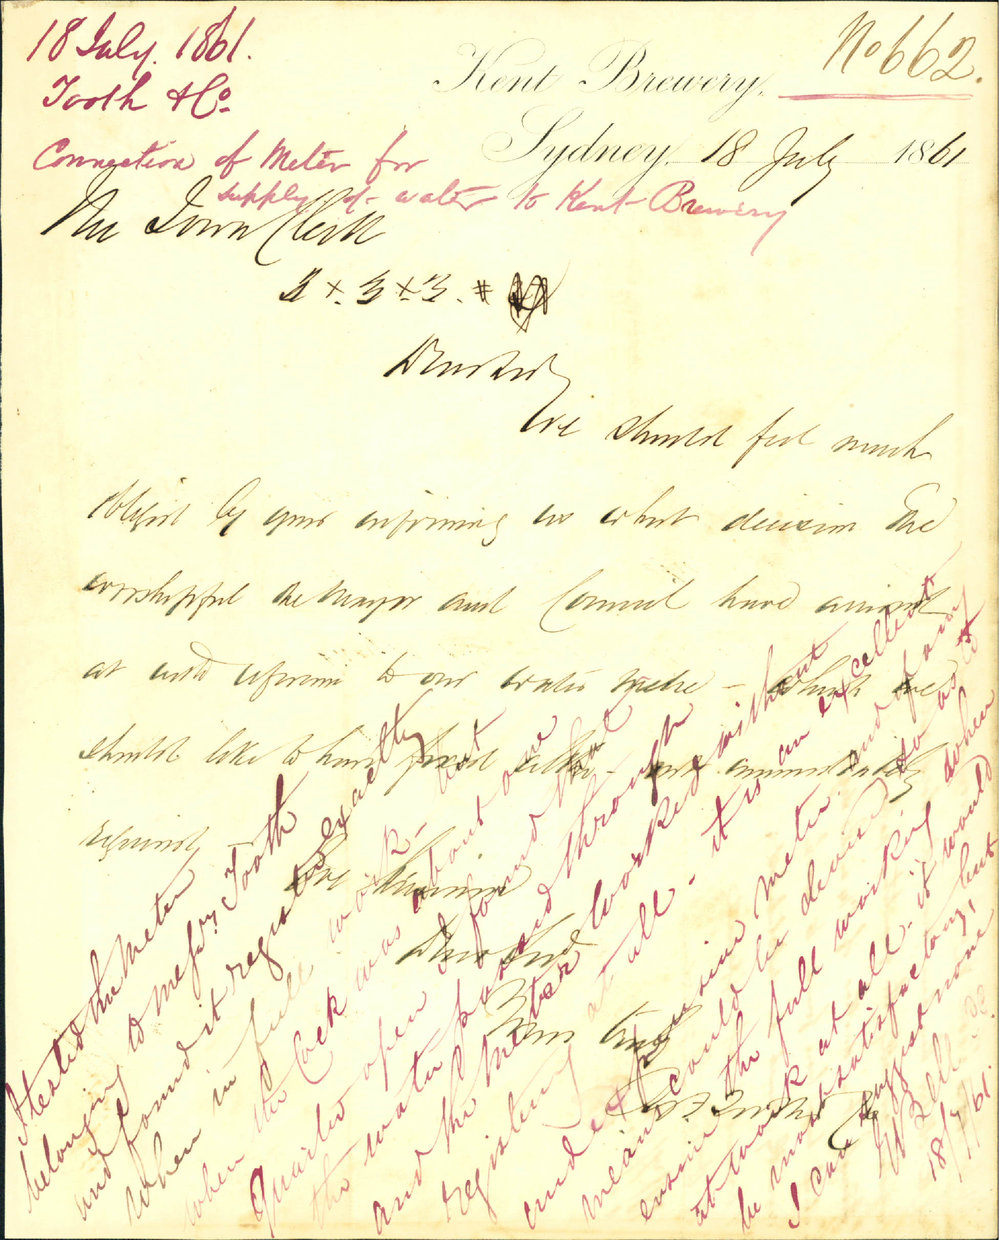 18 July. 1861.
Tooth & Co.
Connection of Meter for
supply of water to Kent Brewery
No 662.
Kent Brewery,
Sydney 18 July 1861
The Town Clerk
3 x 3 x 3. =
Dear Sir
We should feel much
obliged by your informing us what decision the
worshipful the Mayor and Council have arrived
at with reference to our water metre - which we
should like to have fixed immediately
We remain
Dear Sir
Yours truly
I tested the Meter
belonging to Messrs Tooth
and found it registered exactly
when in full work - but
when the Cock was about one
quarter open I found that
the water passed through
and the Meter worked without
registering at all - it is an excellent
and expensive meter and if any
means could be devised to
ensure the full working when
at work at all - it would
be most satisfactory, but
I can suggest none
W Bell
18/7/61.